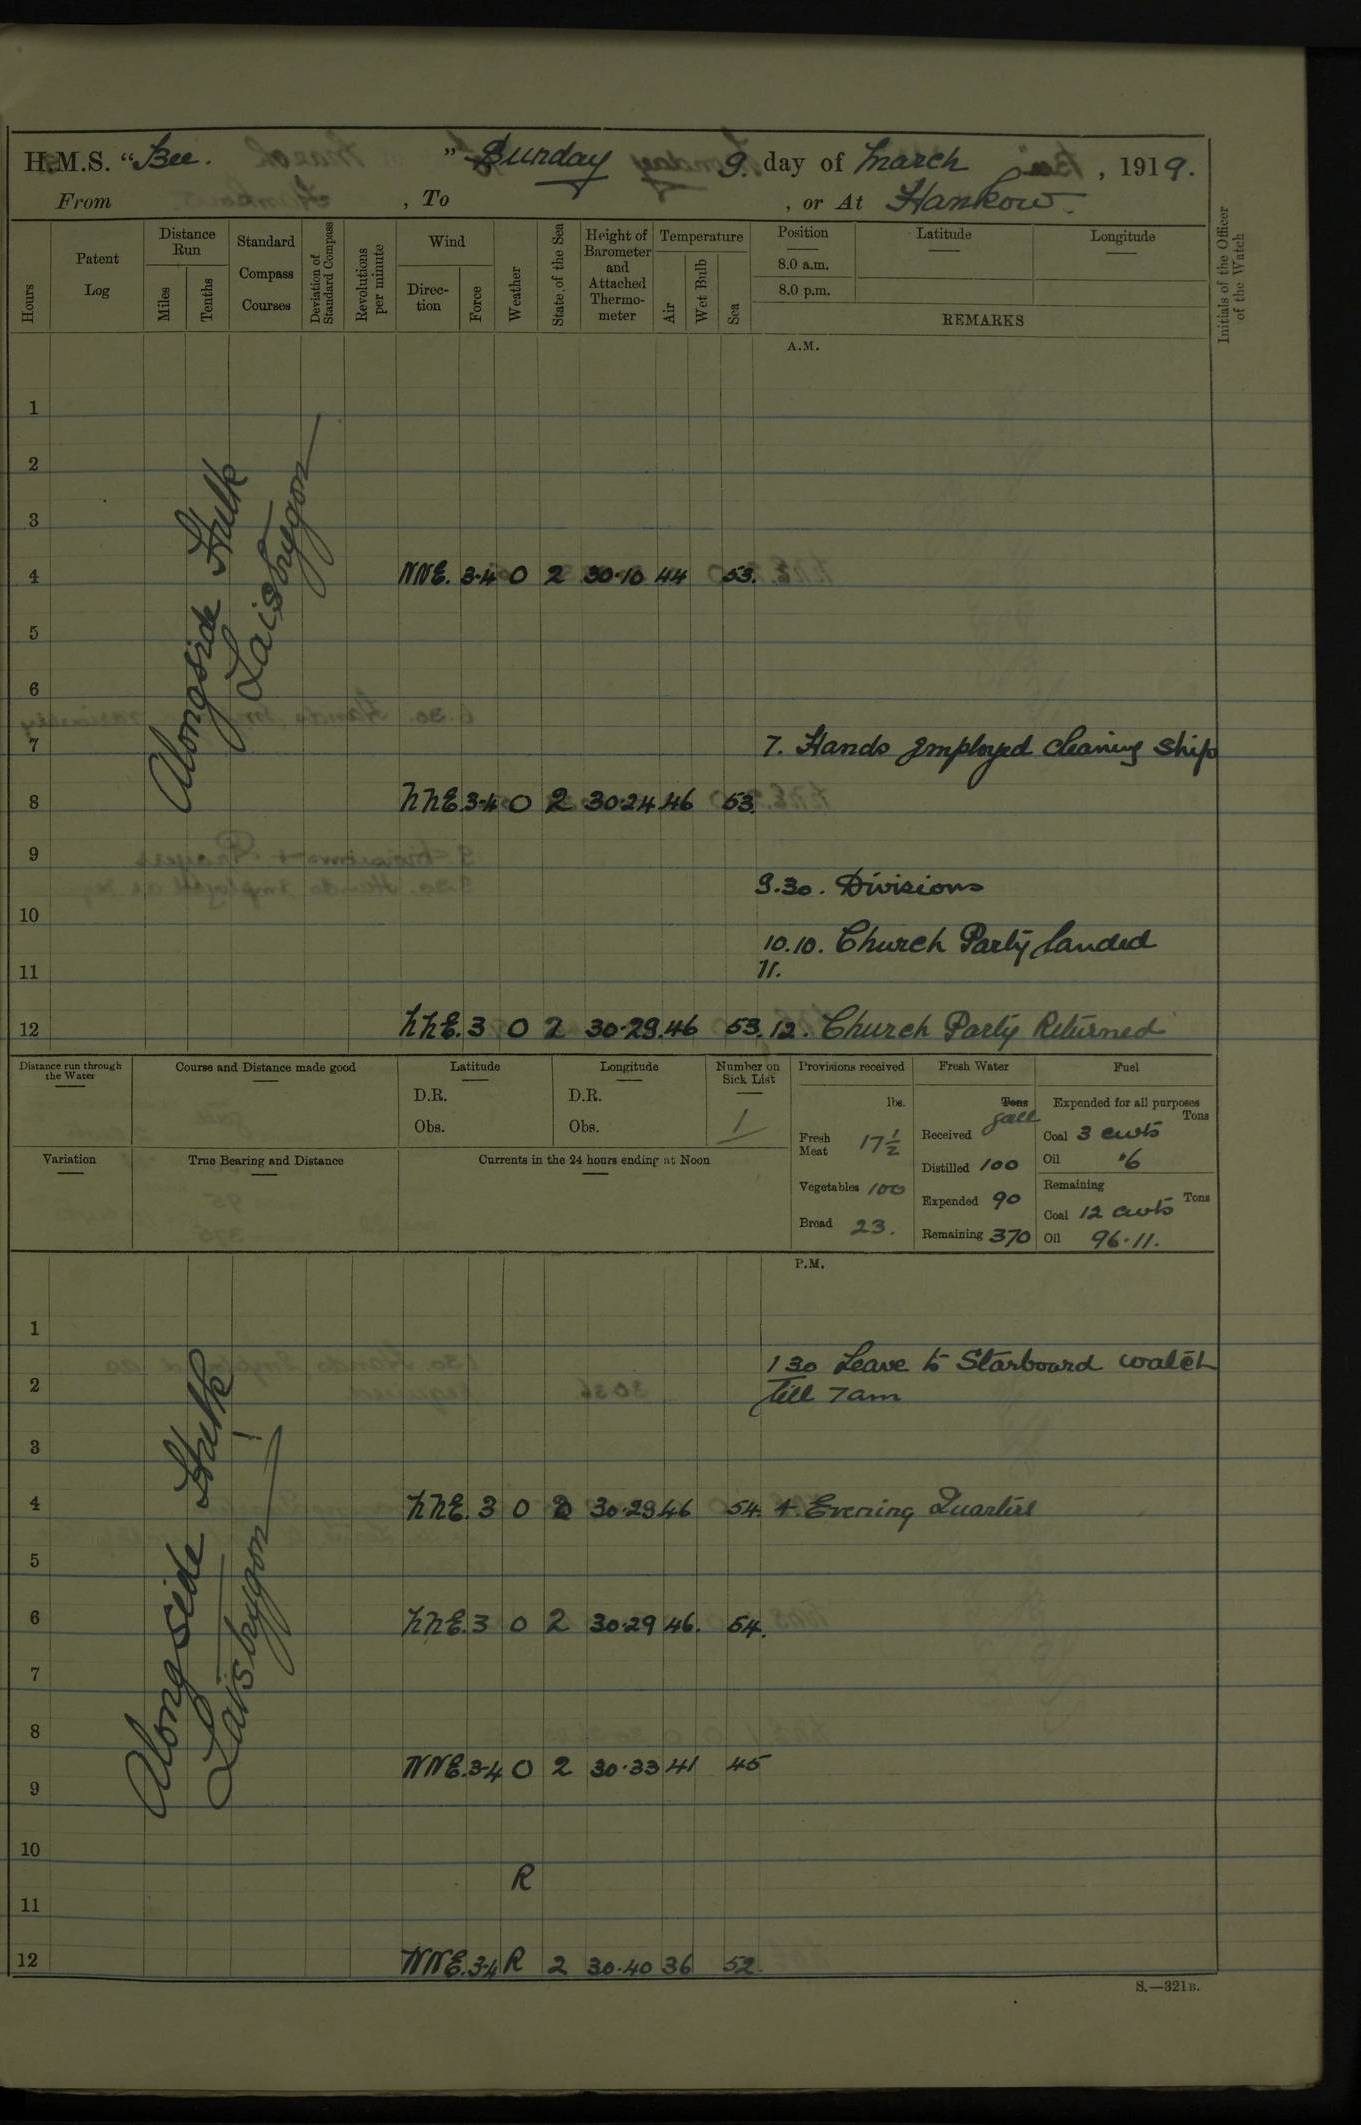 H.M.S. "Bee. " Sunday 9. day of March , 1919.
From , To , or At Hankow.
Hours
Patent Log
Distance Run
Miles
Tenths
Standard Compass Courses
Deviation of Standard Compass
Revolutions per minute
Wind
Direction
Force
Weather
State of the Sea
Height of Barometer and Attached Thermometer
Temperature
Air
Wet Bulb
Sea
Position
8.0 a.m.
8.0 p.m.
Latitude
Longitude
REMARKS
Initials of the Officer of the Watch
A.M.
Alongside Hulk
1
2
3
4 NNE. 3-4 O 2 30.10 44 53.
5
6
7 7. Hands employed cleaning ship
8 NNE. 3-4 O 2 30.24 46 53.
9
9.30. Divisions
10
10.10. Church Party landed
11 11.
12 NNE. 3 O 2 30.29. 46 53. 12. Church Party Returned
Distance run through the Water
Course and Distance made good
Latitude
D.R.
Obs.
Longitude
D.R.
Obs.
Number on Sick List
1
Variation
True Bearing and Distance
Currents in the 24 hours ending at Noon
Provisions received
lbs.
Fresh Meat 17 1/2
Vegetables 100
Bread 23.
Fresh Water
Tons
Galls
Received
Distilled 100
Expended 90
Remaining 370
Fuel
Expended for all purposes
Tons
Coal 3 cwts
Oil .6
Remaining
Tons
Coal 12 cwts
Oil 96.11.
P.M.
Alongside Hulk
1
1 30 Leave to Starboard watch
2 till 7am
3
4 NNE. 3 O 2 30.29 46 54. 4. Evening Quarters
5
6 NNE. 3 O 2 30.29 46. 54.
7
8
NNE. 3-4 O 2 30.33 41 45
9
10
R
11
12 NNE. 3-4 R 2 30.40 36 52.
S.—321B.